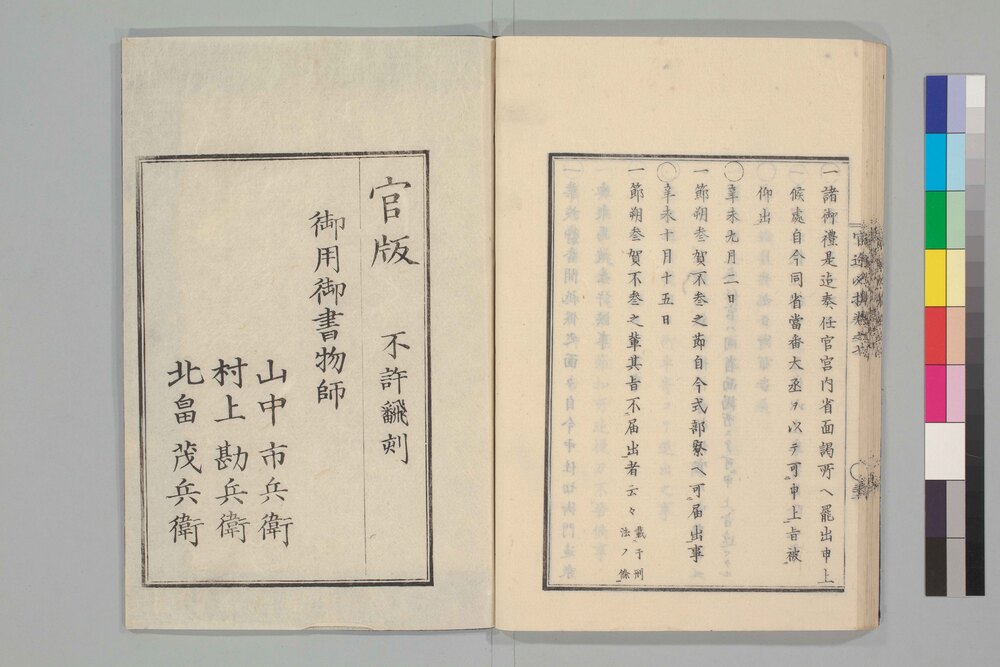 一諸御禮是迄奏任官宮内省面謁所ヘ罷出申上
候處自今同省當番大丞ヲ以テ可申上旨被
仰出
○辛未九月二日
一節朔叁賀不叁之節自今式部寮ヘ可届出事
○辛未十月十五日
一節朔叁賀不叁之輩其旨不届出者云々載于刑法ノ條
官版 不許飜刻
御用御書物師
山中市兵衛
村上勘兵衛
北畠茂兵衛